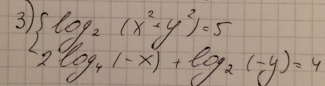 3) { log₂ (x²+y²)=5
2log₄ (-x) + log₂ (-y) = 4